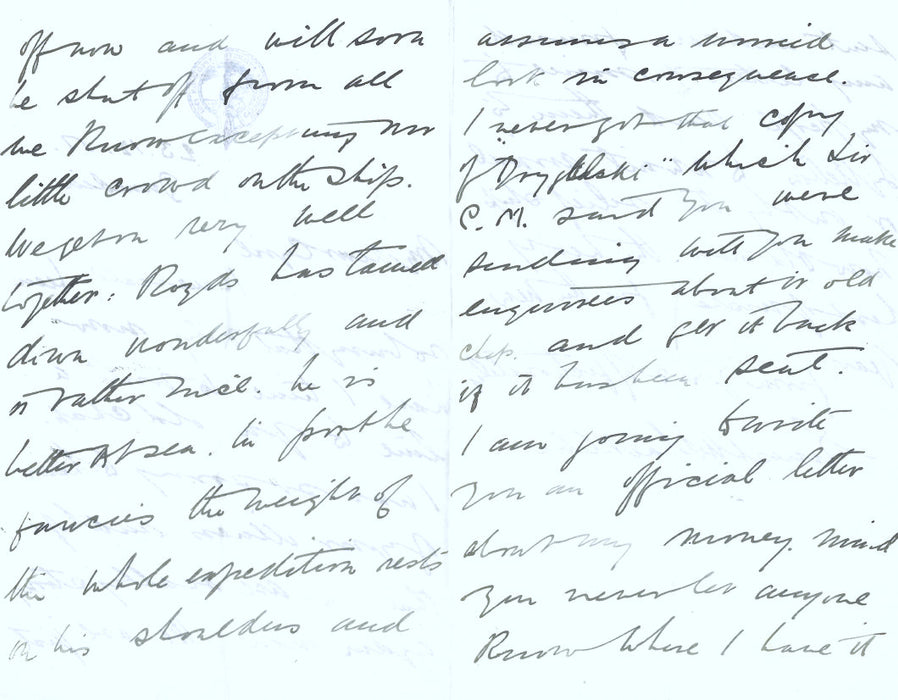 off now and will soon
be shut off from all
we know except my own
little crowd on the ship.
We get on very well
together. Royds has tamed
down wonderfully and
is rather nice. he is
better at sea. In port he
fancies the weight of
the whole expedition rests
on his shoulders and
assumes a worried
look in consequence.
I never got that copy
of "Drygalski" which Sir
C.M. said you were
sending will you make
enquiries about it old
chap. and get it back
if it has been sent.
I am going to write
you an official letter
about my money. Mind
you never let anyone
know where I have it